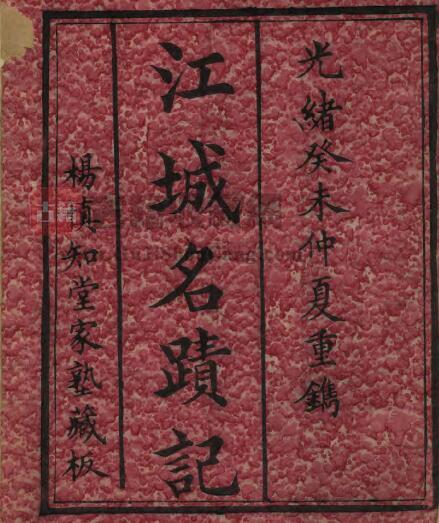 光緒癸未仲夏重鐫
江城名蹟記
楊真知堂家塾藏板